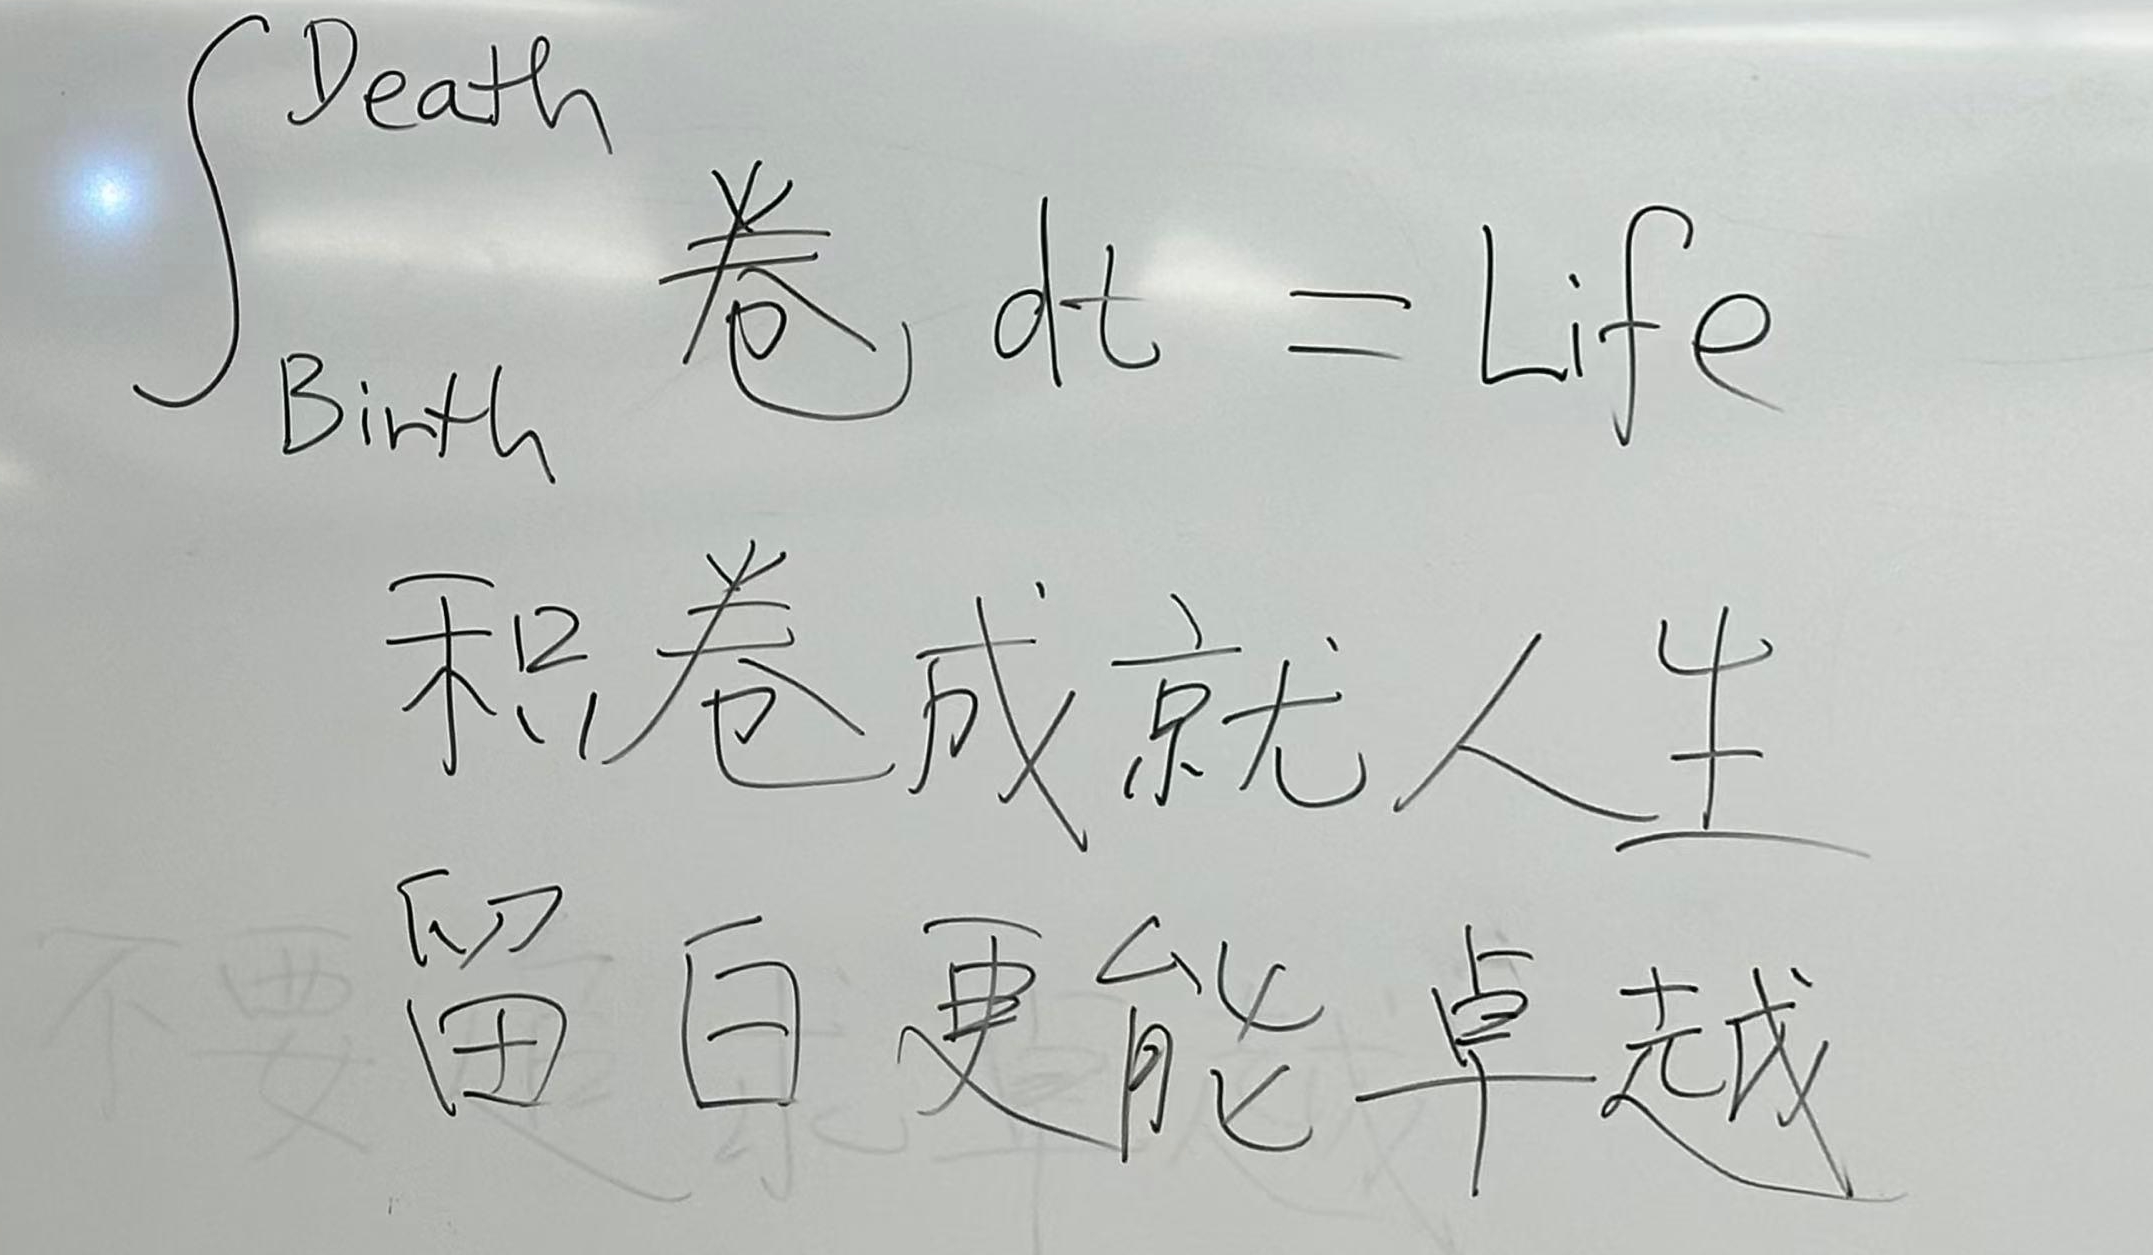 ∫_Birth^Death 卷 dt = Life
积卷成就人生
留白更能卓越
不要追求卓越